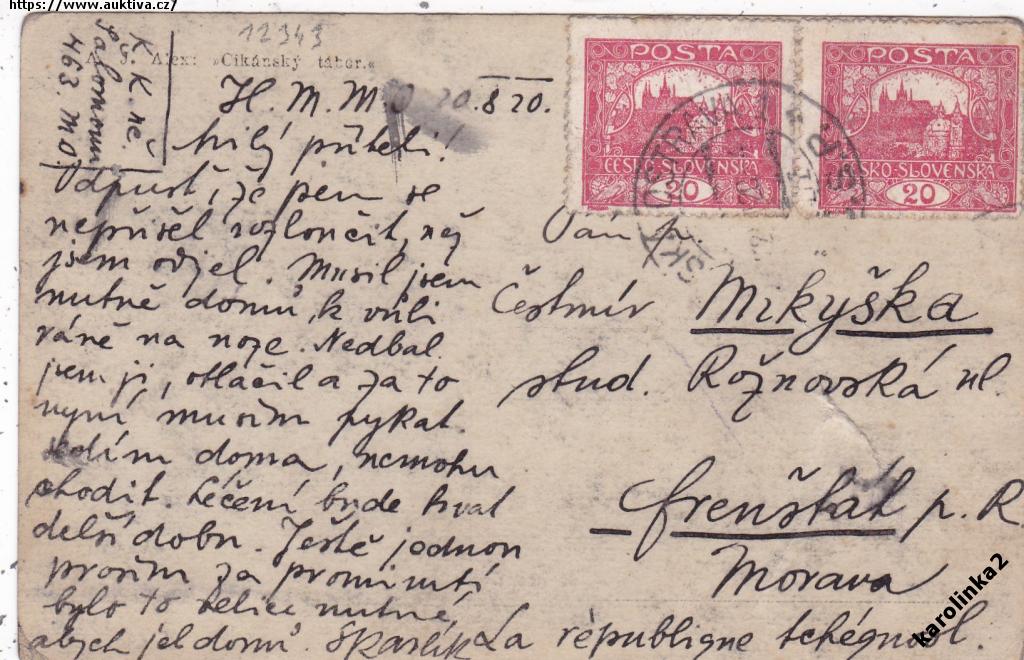 https://www.auktiva.cz/
12343
A. J. Alex: „Cikánský tábor.“
K. K. né.
463 M. O.
H. M. M. O 20. 8 20.
Milý příteli!
Odpusť, že jsem se
nepřišel rozloučit, než
jsem odjel. Musil jsem
nutně domů, k vůli
ráně na noze. Nedbal
jsem jí, otlačil a za to
nyní musím pykat.
sedím doma, nemohu
chodit. Léčení bude trvat
delší dobu. Ještě jednou
prosím za prominutí,
bylo to velice nutné,
abych jel domů.
POSTA
ČESKO-SLOVENSKÁ
20
POSTA
ČESKO-SLOVENSKÁ
20
Pán p.
Čestmír Mikyška
stud. Rožnovská ul.
Frenštát p. R.
Morava
La republique tchéquosl.
karolinka2